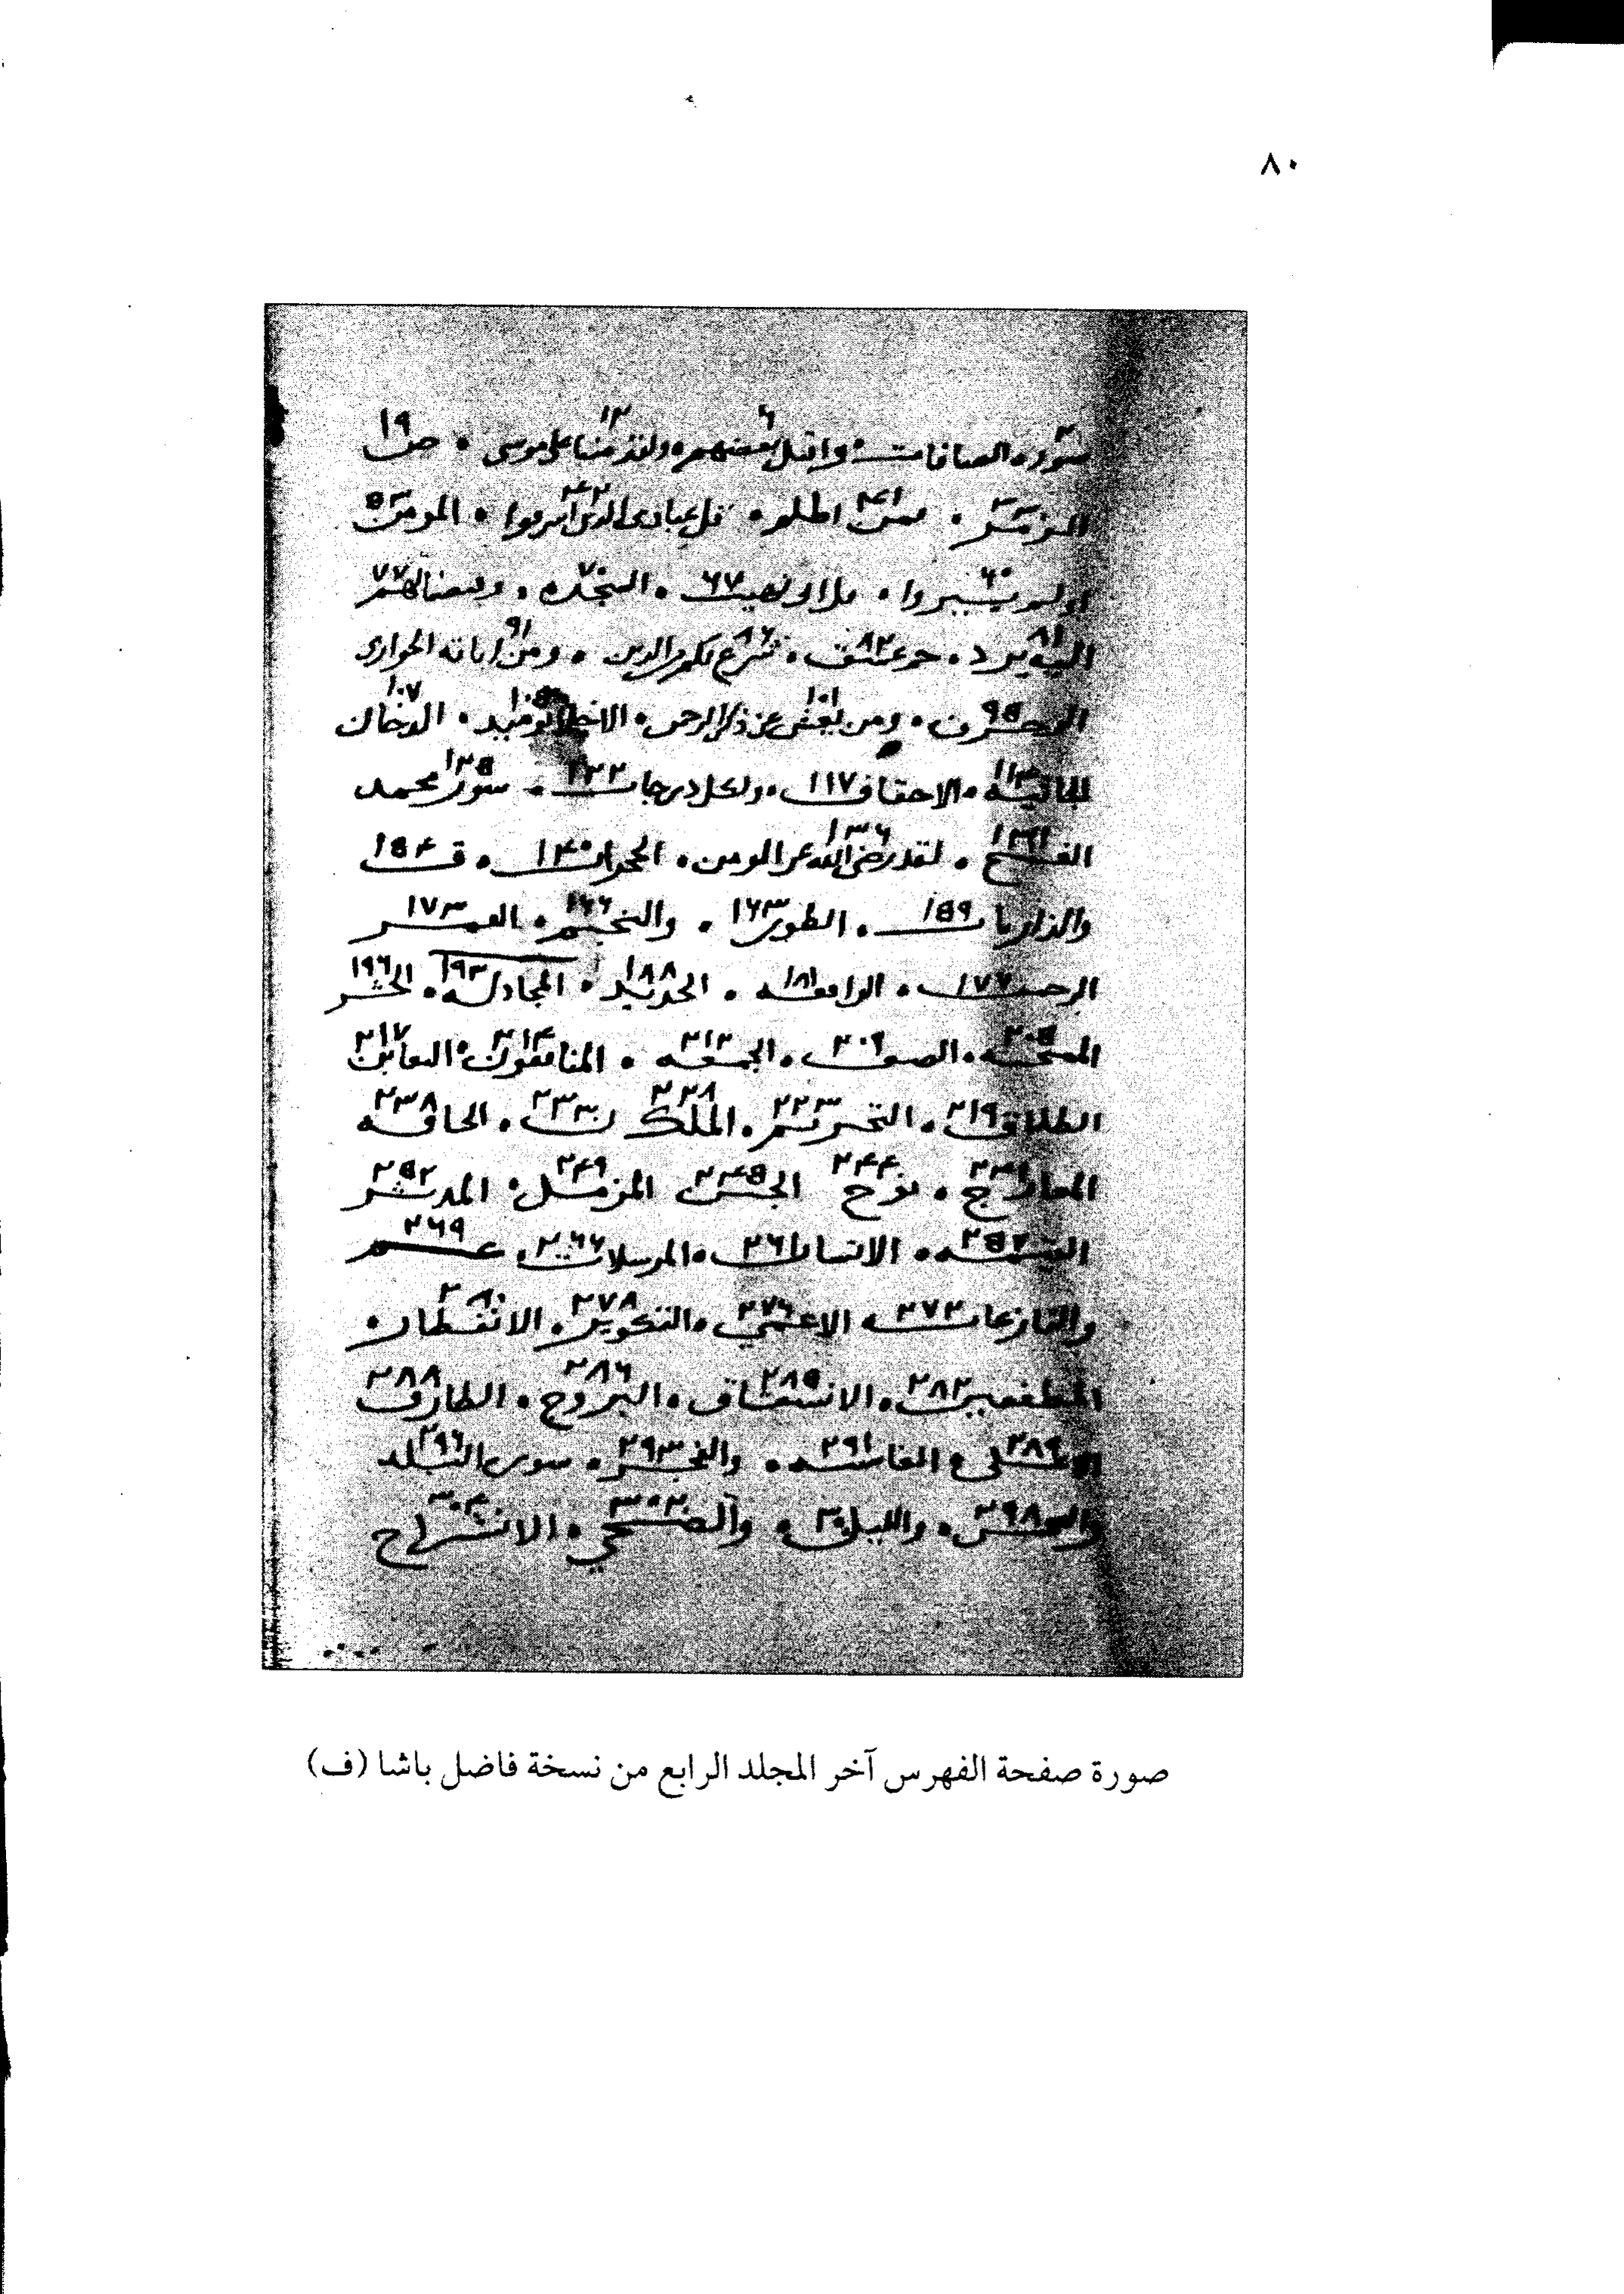 ٨٠
سورة الصافات ٣ • واقبل بعضهم ٦ • ولقد مننا على موسى ١٢ • ص ١٩
الزمر • فمن اظلم ٤١ • قل يعبادى الذين اسرفوا ٤٣ • المومن ٥٣
اولم يسيروا ٦٠ • قل انى نهيت ٦٧ • السجده ٧٠ • وقيضنا لهم ٧٧
اليه يرد ٨١ • حم عسق ٨٣ • شرع لكم من الدين ٨٦ • ومن اياته الجوارى ٩١
الزخرف ٩٥ • ومن يعش عن ذكر الرحمن ١٠١ • الاخلا يوميد ١٠٥ • الدخان ١٠٧
الجاثيه • الاحقاف ١١٧ • ولكل درجات • سورة محمد ١٢٥
الفتح • لقد رضى الله عن المومنين ١٣٦ • الحجرات ١٤٠ • ق ١٥٤
والذاريات ١٥٩ • الطور ١٦٣ • والنجم ١٦٦ • القمر ١٧٣
الرحمن ١٧٧ • الواقعه ١٨١ • الحديد ١٨٨ • المجادله ١٩٣ • الحشر ١٩٦
الممتحنه ٢٠٥ • الصف ٢٠٩ • الجمعه ٢١٢ • المنافقون ٢١٤ • التغابن ٢١٧
الطلاق ٢١٩ • التحريم ٢٢٣ • الملك ٢٢٨ ن ٢٣٣ • الحاقه ٢٣٨
المعارج • نوح ٢٤٤ الجن ٢٤٥ المزمل ٢٤٩ • المدثر ٢٥٢
القيمه • الانسان ٢٦١ • المرسلات ٢٦٦ • عم ٢٦٩
والنازعات ٢٧٣ الاعمى ٢٧٦ • التكوير ٢٧٨ • الانفطار ٢٨٠ •
المطففين ٢٨٢ • الانشقاق ٢٨٥ • البروج ٢٨٦ • الطارق ٢٨٨
الاعلى ٢٨٩ • الغاشيه ٢٩١ • والفجر ٢٩٣ • سورة البلد ٢٩٦
والشمس ٢٩٨ • والليل • والضحي ٣٠٢ • الانشراح ٣٠٤
صورة صفحة الفهرس آخر المجلد الرابع من نسخة فاضل باشا (ف)